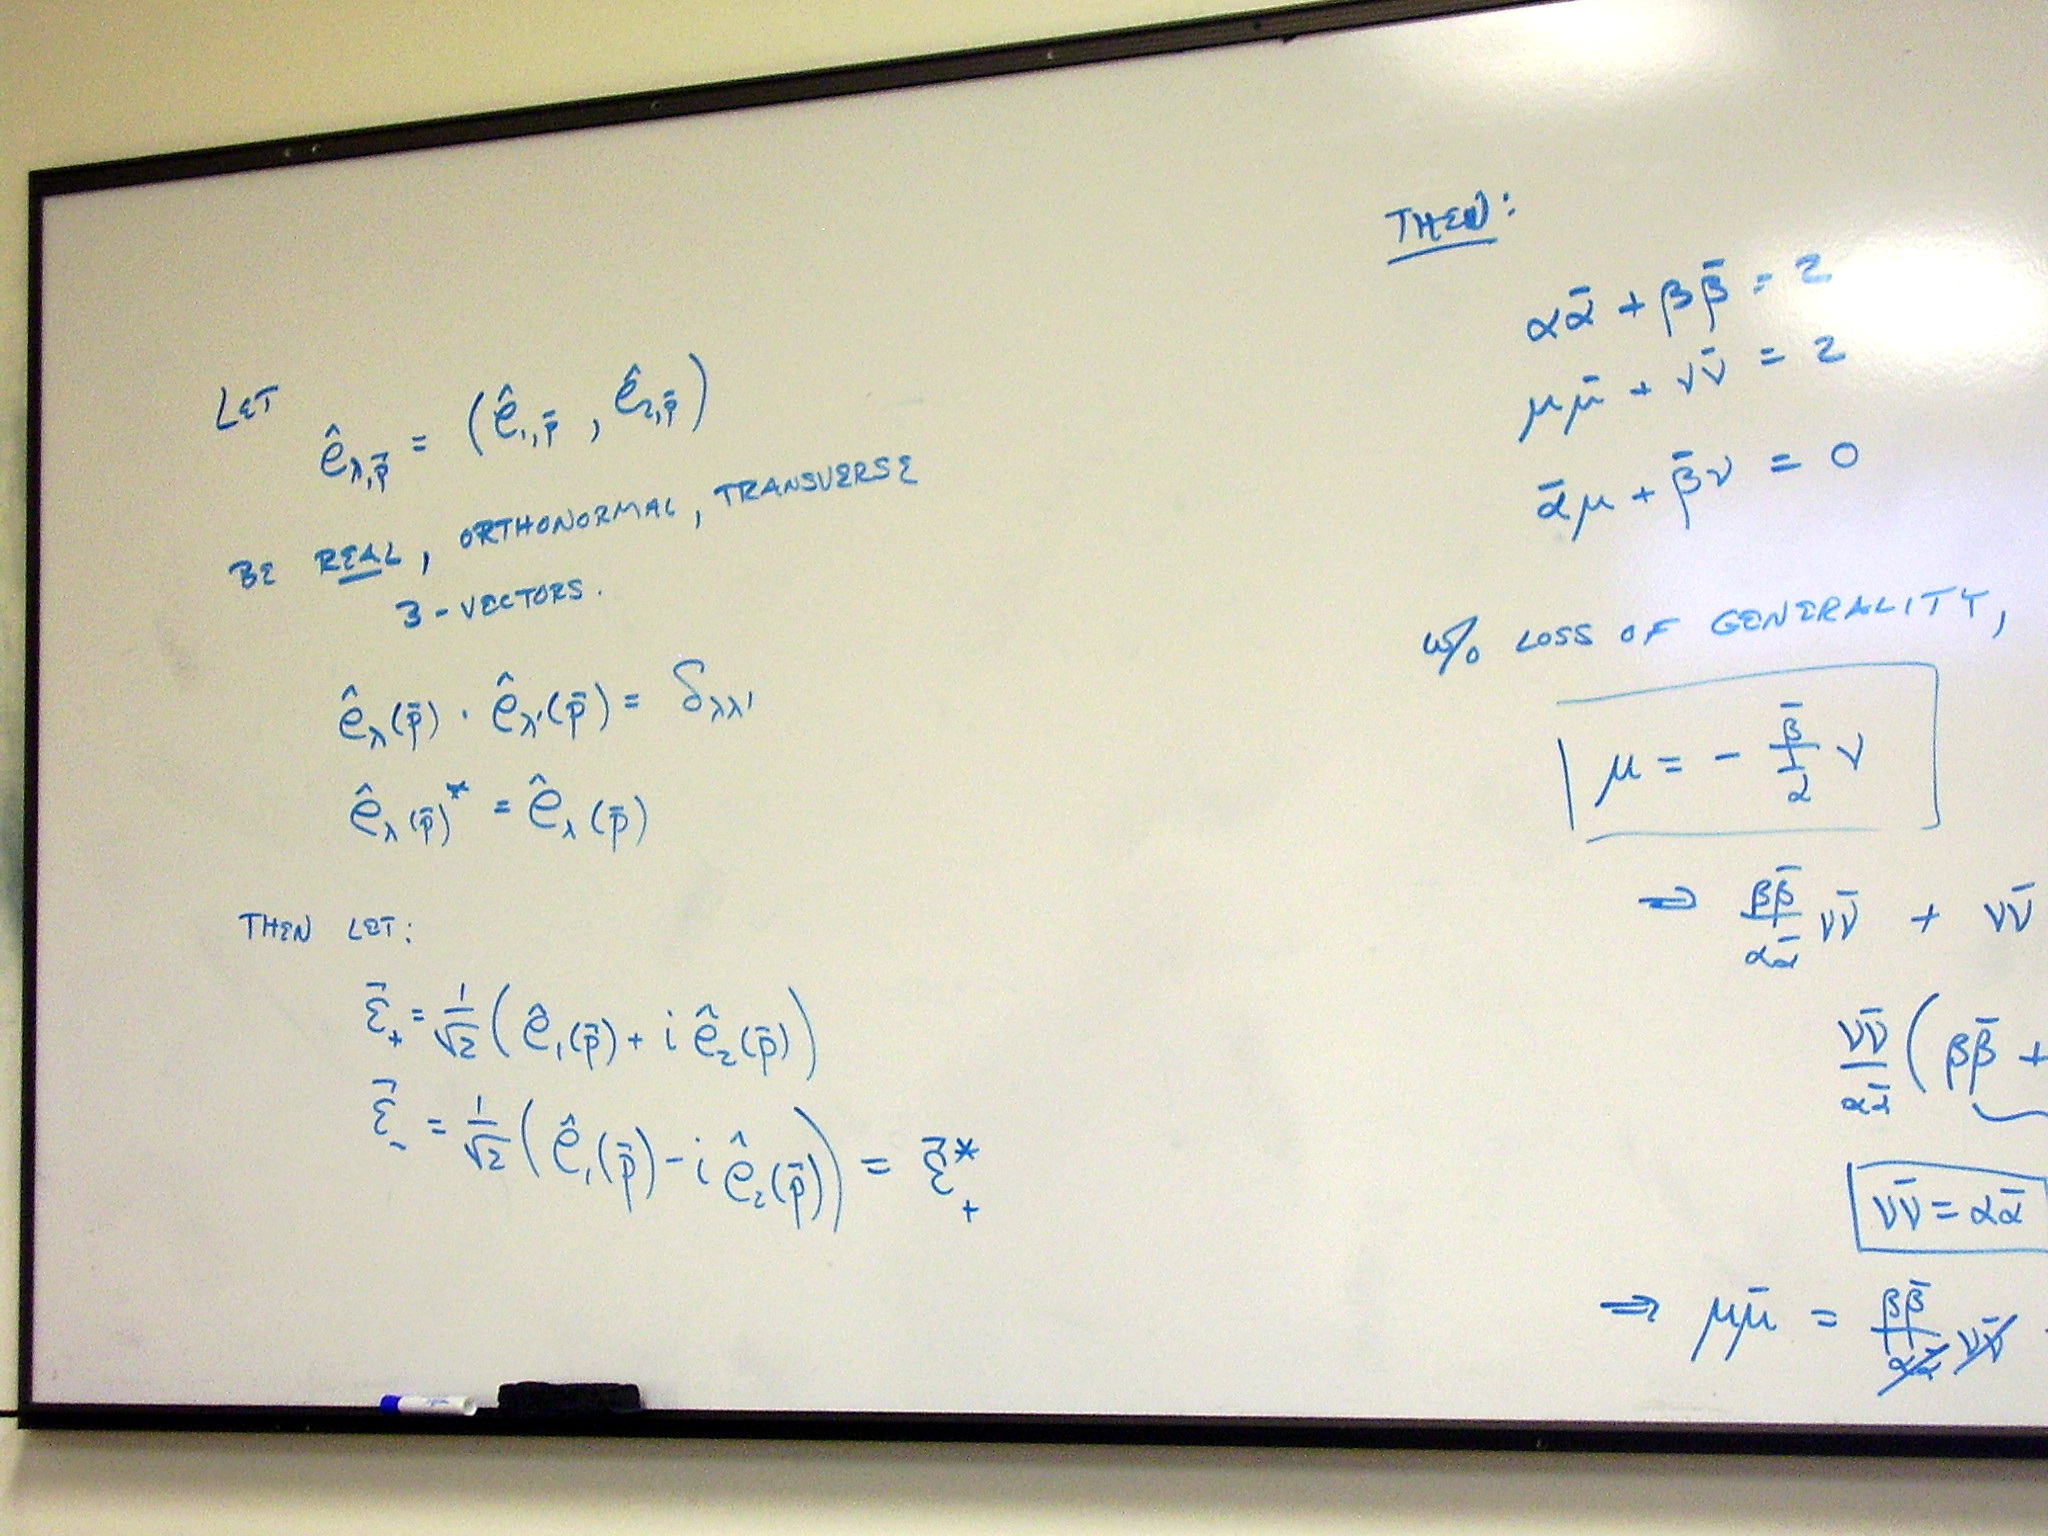 LET
ê_λ,p̄ = (ê_1,p̄ , ê_2,p̄)
BE REAL, ORTHONORMAL, TRANSVERSE
3-VECTORS.
ê_λ(p̄) · ê_λ'(p̄) = δ_λλ'
ê_λ(p̄)* = ê_λ(p̄)
THEN LET:
ε̄_+ = 1/√2 (ê_1(p̄) + i ê_2(p̄))
ε̄_- = 1/√2 (ê_1(p̄) - i ê_2(p̄)) = ε̄_+*
THEN:
αᾱ + ββ̄ = 2
μμ̄ + νν̄ = 2
ᾱμ + β̄ν = 0
w/o LOSS OF GENERALITY,
μ = - β̄/ᾱ ν
⇒ ββ̄/αᾱ νν̄ + νν̄
νν̄/αᾱ (ββ̄ +
νν̄ = αᾱ
⇒ μμ̄ = ββ̄/αᾱ νν̄